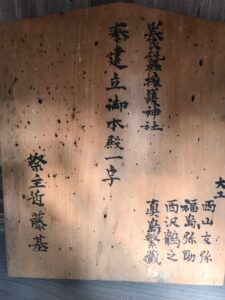 養蚕擁護神社
奉建立御本殿一宇
大工
西山友弥
福島弥助
西沢鶴之
真島繁蔵
祭主近藤基